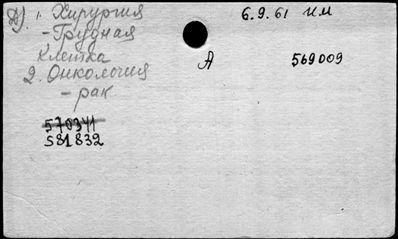 Д) 1. Хирургия
- Грудная
клетка
2. Онкология
- рак
570341
581832
6.9.61 им
А 569009